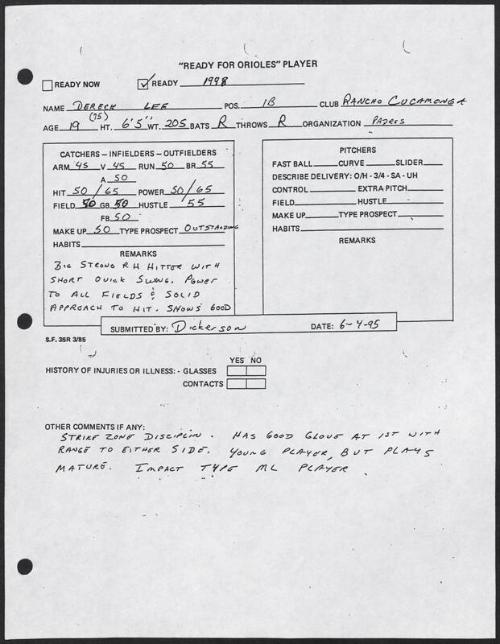 "READY FOR ORIOLES" PLAYER
READY NOW ✓ READY 1998
NAME DERECK LEE POS. 1B CLUB RANCHO CUCAMONGA
(75)
AGE 19 HT. 6'5" WT. 205 BATS R THROWS R ORGANIZATION PADRES
CATCHERS – INFIELDERS – OUTFIELDERS
ARM 45 V 45 RUN 50 BR 55
A 50
HIT 50/65 POWER 50/65
FIELD 50 GB 50 HUSTLE 55
FB 50
MAKE UP 50 TYPE PROSPECT OUTSTANDING
HABITS
REMARKS
BIG STRONG RH HITTER WITH
SHORT QUICK SWING. POWER
TO ALL FIELDS & SOLID
APPROACH TO HIT. SHOWS GOOD
PITCHERS
FAST BALL CURVE SLIDER
DESCRIBE DELIVERY: O/H - 3/4 - SA - UH
CONTROL EXTRA PITCH
FIELD HUSTLE
MAKE UP TYPE PROSPECT
HABITS
REMARKS
SUBMITTED BY: Dickerson DATE: 6-4-95
S.F. 35R 3/85
YES NO
HISTORY OF INJURIES OR ILLNESS: - GLASSES
CONTACTS
OTHER COMMENTS IF ANY:
STRIKE ZONE DISCIPLIN. HAS GOOD GLOVE AT 1ST WITH
RANGE TO EITHER SIDE. YOUNG PLAYER, BUT PLAYS
MATURE. IMPACT TYPE ML PLAYER